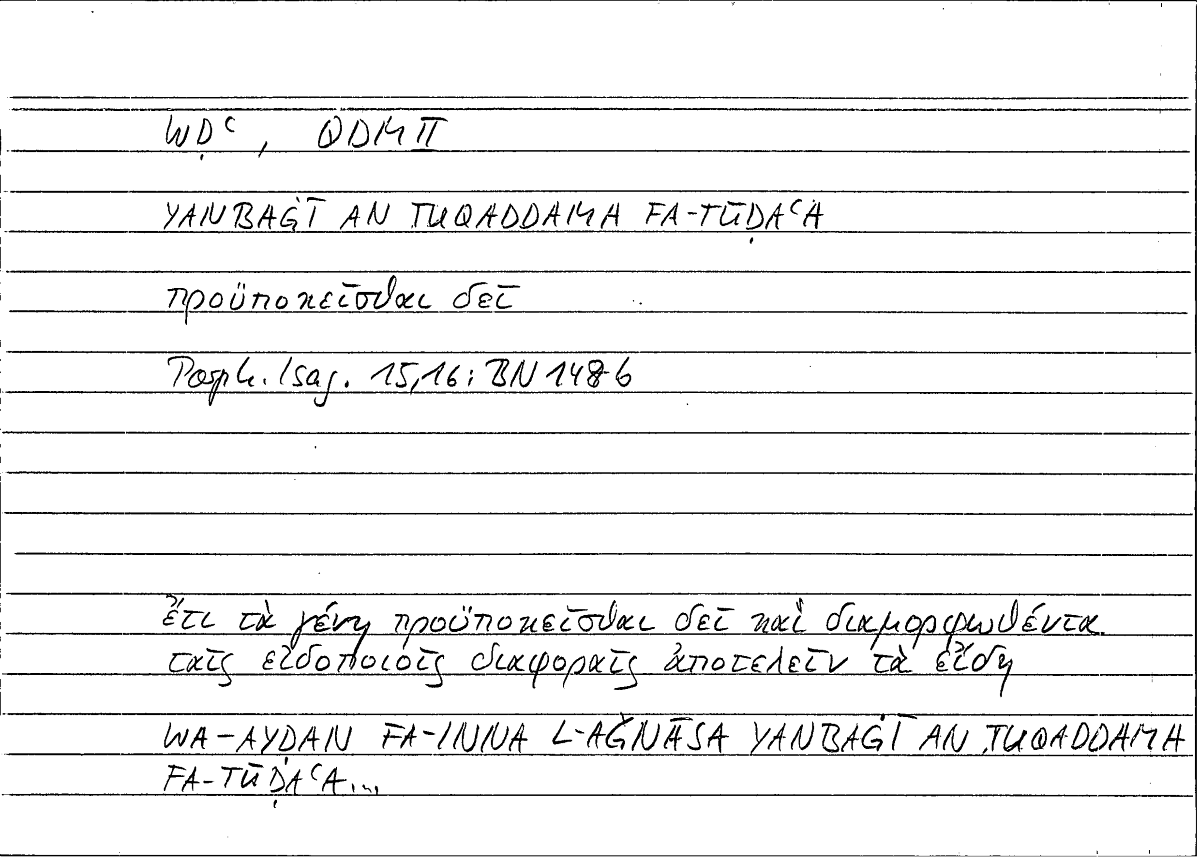 WḌʿ, QDM II
YANBAĠĪ AN TUQADDAMA FA-TŪḌAʿA
προϋποκεῖσθαι δεῖ
Porph. Isag. 15,16: BN 148b
ἔτι τὰ γένη προϋποκεῖσθαι δεῖ καὶ διαμορφωθέντα
ταῖς εἰδοποιοῖς διαφοραῖς ἀποτελεῖν τὰ εἴδη
WA-AYḌAN FA-INNA L-AǦNĀSA YANBAĠĪ AN TUQADDAMA
FA-TŪḌAʿA...